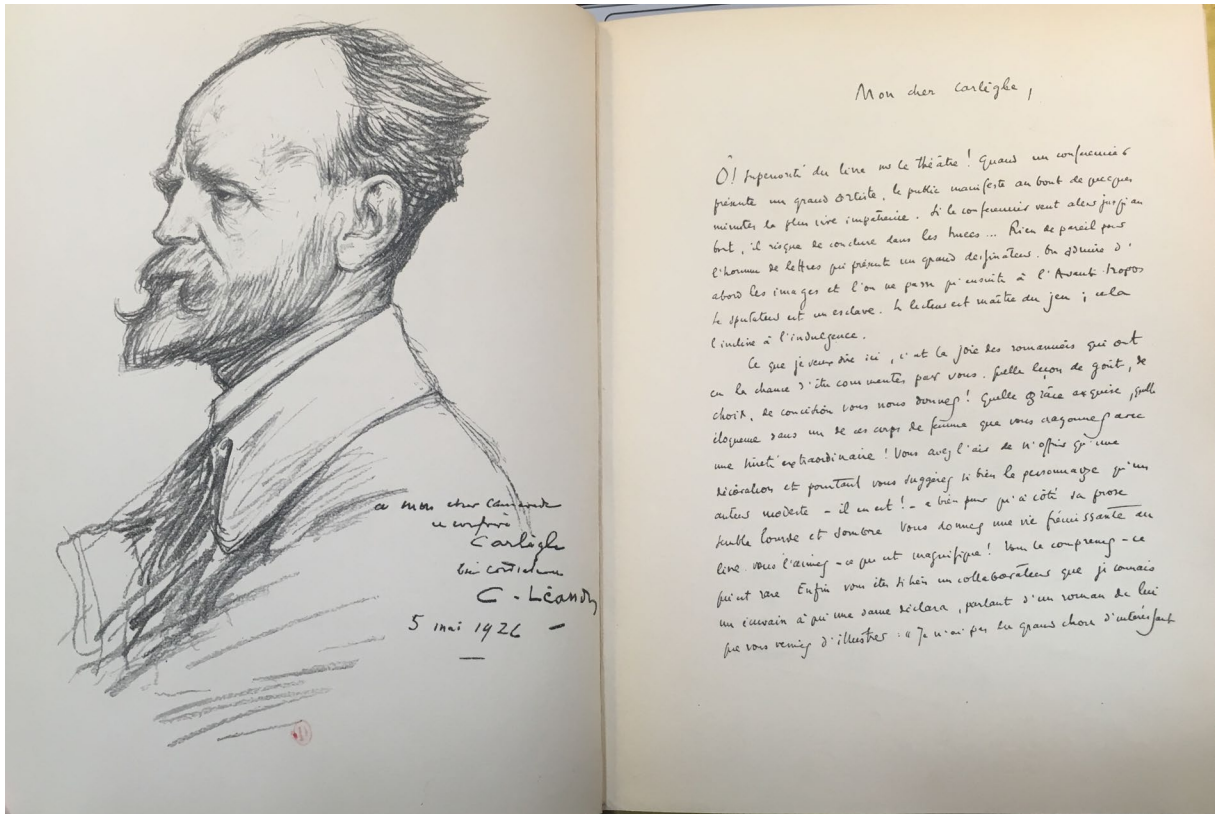 a mon cher camarade
et confrère
Carlègle
bien cordialement
C. Léandre
5 mai 1926
Mon cher Carlègle,
Ô! Supériorité du livre sur le théâtre! Quand un conférencier
présente un grand artiste, le public manifeste au bout de quelques
minutes la plus vive impatience. Si le conférencier veut aller jusqu'au
bout, il risque de conclure dans les huées... Rien de pareil pour
l'homme de lettres qui présente un grand dessinateur. On admire d'
abord les images et l'on ne passe qu'ensuite à l'Avant-Propos
Le spectateur est un esclave. Le lecteur est maître du jeu; cela
l'incline à l'indulgence.
Ce que je veux dire ici, c'est la joie des romanciers qui ont
eu la chance d'être commentés par vous. Quelle leçon de goût, de
choix, de concision vous nous donnez! Quelle grâce exquise, quelle
éloquence dans un de ces corps de femme que vous crayonnez avec
une sûreté extraordinaire! Vous avez l'air de n'offrir qu'une
décoration et pourtant vous suggérez si bien le personnage qu'un
auteur modeste - il en est! - a bien peur qu'à côté sa prose
semble lourde et sombre. Vous donnez une vie frémissante au
livre. Vous l'aimez - ce qui est magnifique! Vous le comprenez - ce
qui est rare. Enfin vous êtes si bien un collaborateur que je connais
un écrivain à qui une dame déclara, parlant d'un roman de lui
que vous veniez d'illustrer: "Je n'ai pas lu grand chose d'intéressant